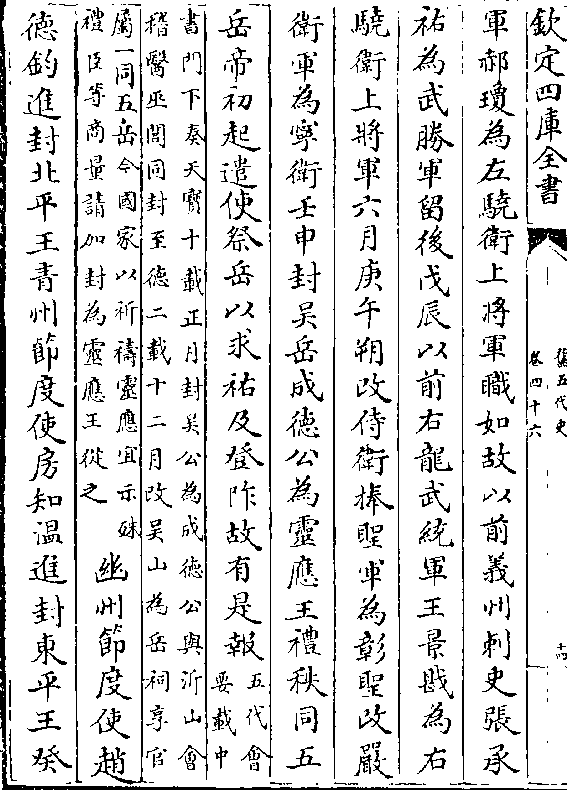 欽定四庫全書
舊五代史
卷四十六
十四
軍郝瓊為左驍衛上將軍職如故以前義州刺史張承
祐為武勝軍留後戊辰以前右龍武統軍王景戡為右
驍衛上將軍六月庚午朔改侍衛捧聖軍為彰聖改嚴
衛軍為寧衛壬申封吳岳成德公為靈應王禮秩同五
岳帝初起遣使祭岳以求祐及登阼故有是報
五代會
要載中
書門下奏天寶十載正月封吳公為成德公與沂山會
稽醫巫閭同封至德二載十二月改吳山為岳祠享官
屬一同五岳今國家以祈禱靈應宜示殊
禮臣等商量請加封為靈應王從之
幽州節度使趙
德鈞進封北平王青州節度使房知溫進封東平王癸